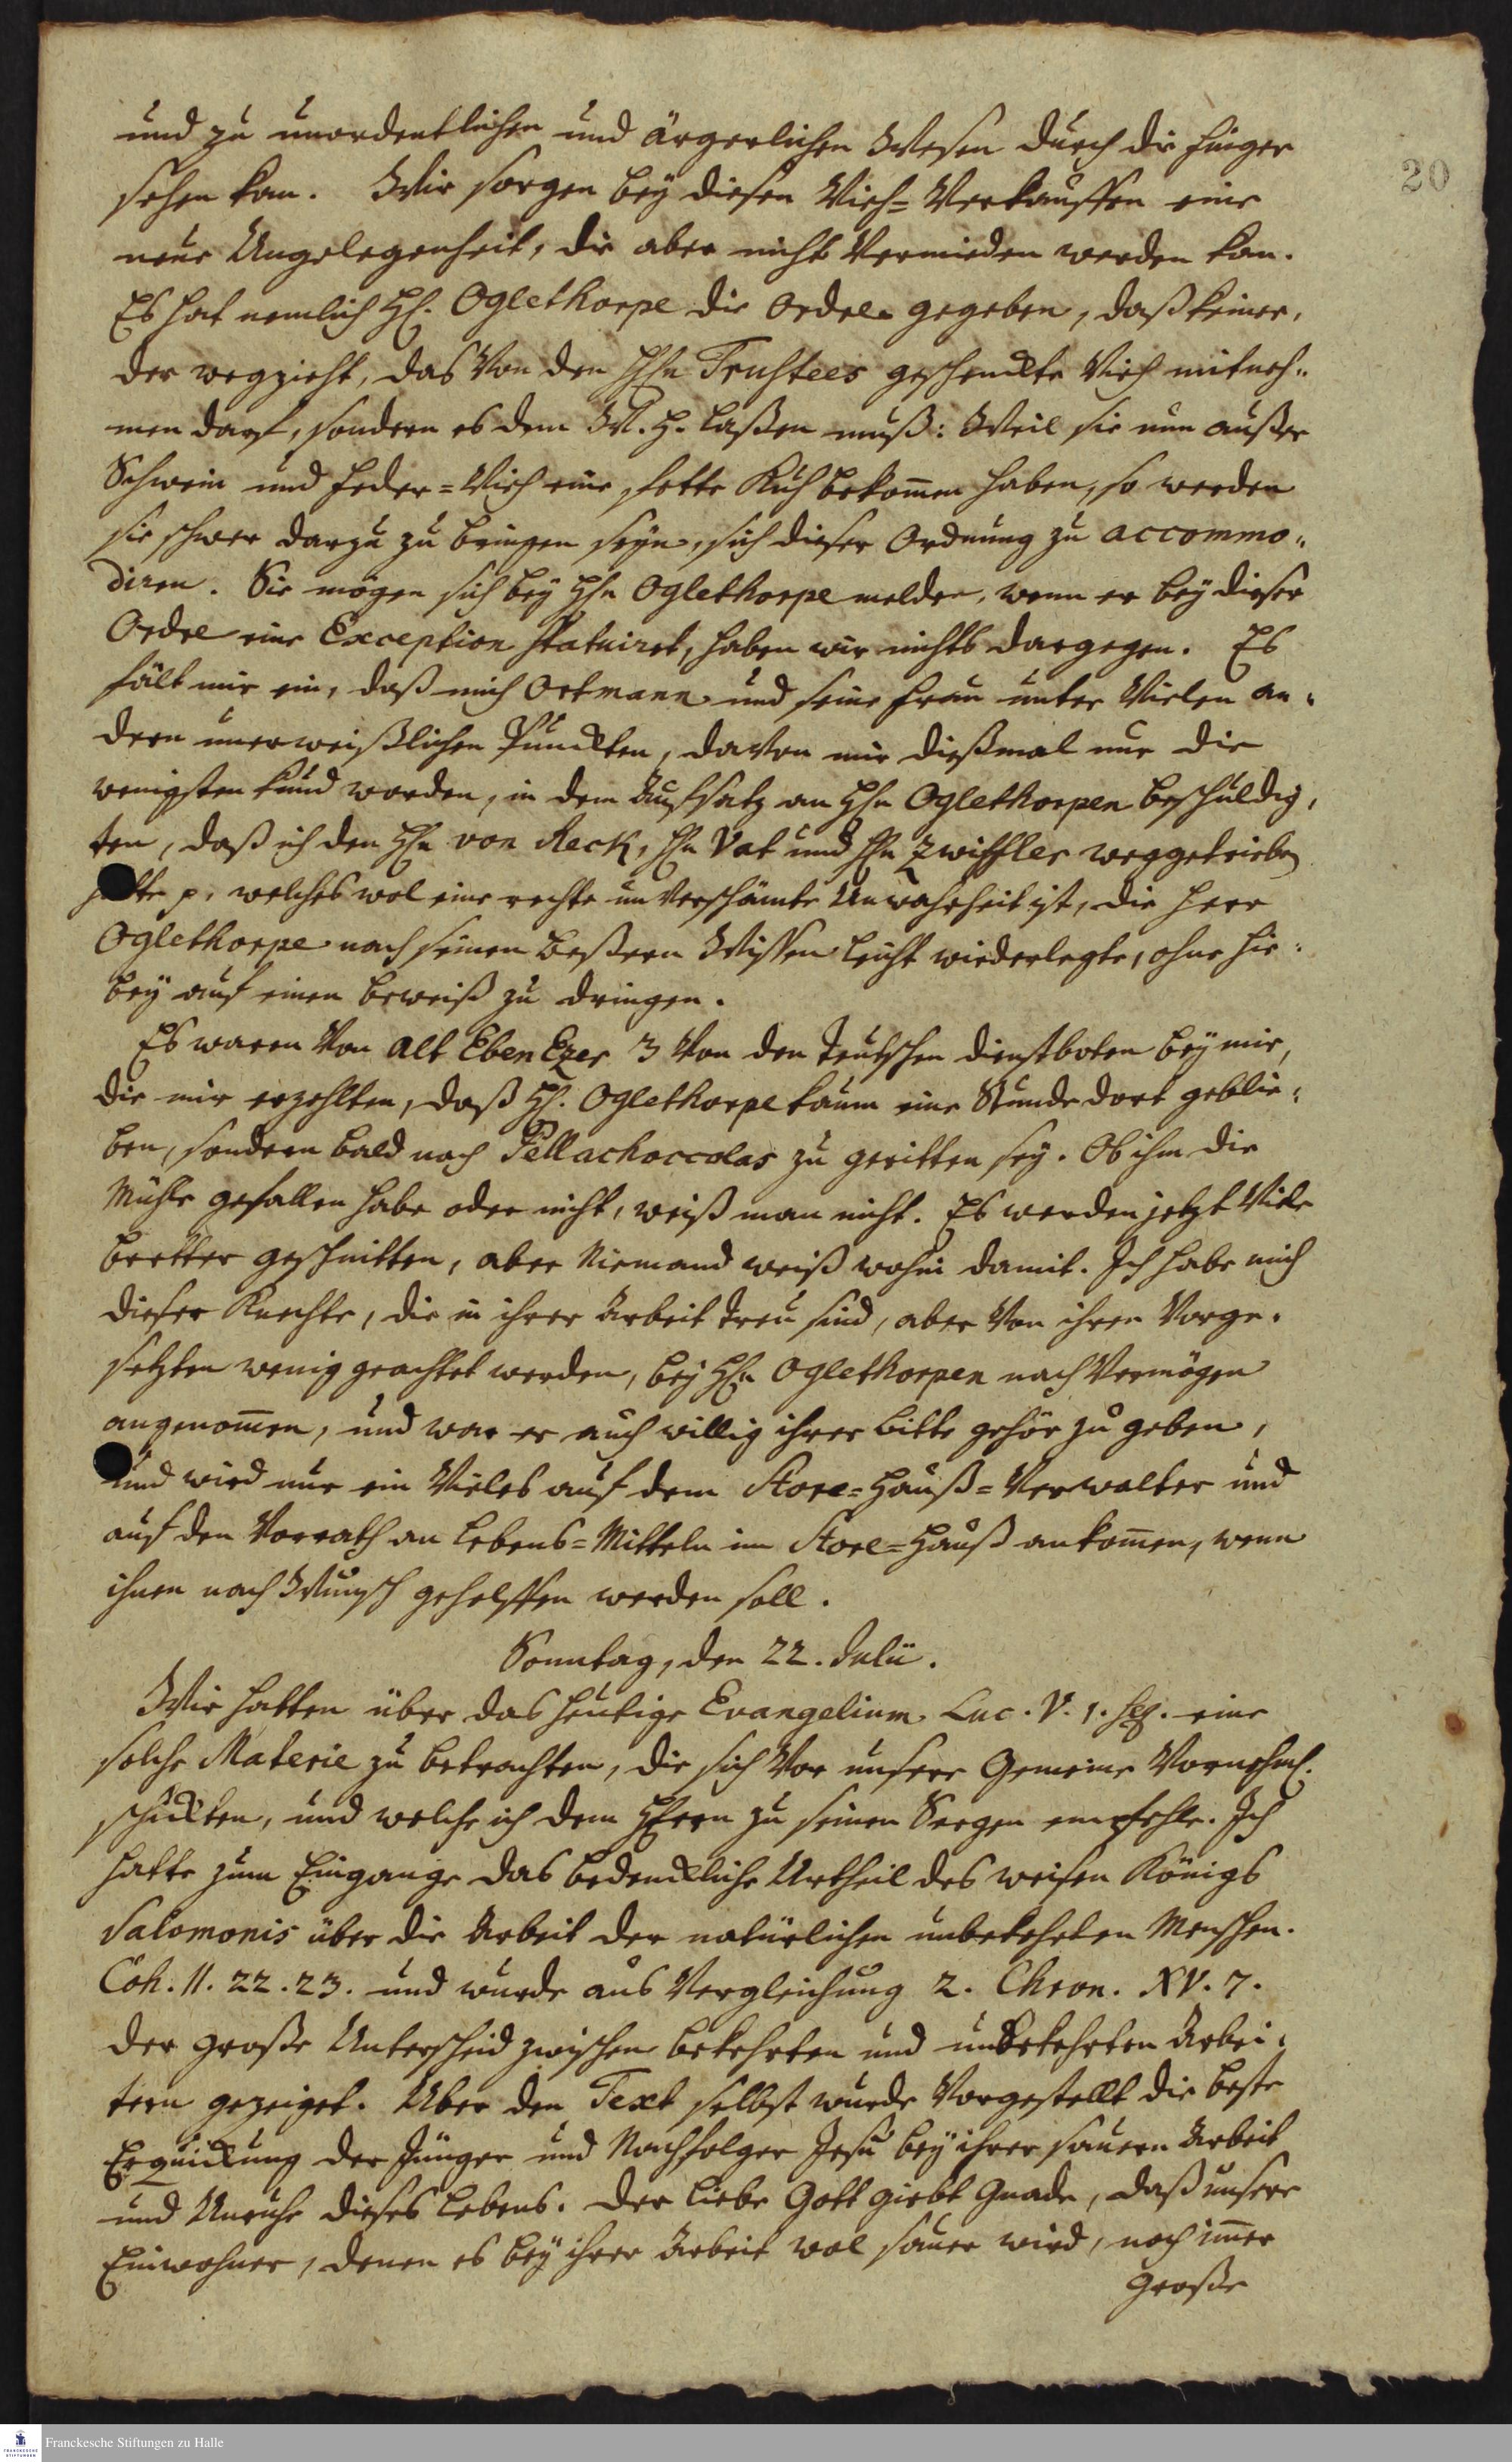 20
und zu unordentlichen und ärgerlichen Wesen durch die Finger
sehen kan. Wir sorgen bey diesen Vieh-Verkauffen eine
neue Ungelegenheit, die aber nicht vermieden werden kan.
Es hat nemlich H. Oglethorpe die Ordre gegeben, daß keiner,
der wegzieht, das von den HHn Trustees geschenckte Vieh mitneh-
men darf, sondern es dem W. H. laßen muß: Weil sie nun außer
Schwein und Feder-Vieh eine fette Kuh bekom̄en haben, so werden
sie schwer darzu zu bringen seyn, sich dieser Ordnung zu accommo-
diren. Sie mögen sich bey Hn Oglethorpe melden, wenn er bey dieser
Ordre eine Exception statuiret, haben wir nichts dargegen. Es
fält mir ein, daß mich Ortmann und seine Frau unter vielen an-
dern unerweißlichen Punckten, davon mir dießmal nur die
wenigsten kund worden, in dem Aufsatz an Hn Oglethorpen beschuldig-
ten, daß ich den Hn von Reck, Hn Vat und Hn Zwiffler weggetrieben
hätte p. welches wol eine rechte unverschämte Unwahrheit ist, die Herr
Oglethorpe nach seinen beßern Wissen leicht wiederlegte, ohne hie-
bey auf einen Beweiß zu dringen.
Es waren von alt EbenEzer 3 von den teutschen Dienstboten bey mir,
die mir erzehlten, daß H. Oglethorpe kaum eine Stunde dort geblie-
ben, sondern bald nach Pallachoccolas zu geritten sey. Ob ihm die
Mühle gefallen habe oder nicht, weiß man nicht. Es werden jetzt viele
Bretter geschnitten, aber Niemand weiß wohin damit. Ich habe mich
dieser Knechte, die in ihrer Arbeit treu sind, aber von ihren Vorge-
setzten wenig geachtet werden, bey Hn Oglethorpen nach Vermögen
angenom̄en, und war er auch willig ihrer Bitte gehör zu geben,
und wird nur ein Vieles auf dem Store-Hauß-Verwalter und
auf den Vorrath an Lebens-Mitteln im Store-Hauß ankom̄en, wenn
ihnen nach Wunsch geholffen werden soll.
Sonntag, den 22. Julii.
Wir hatten über das heutige Evangelium Luc. V. 1. sqq. eine
solche Materie zu betrachten, die sich vor unsere Gemeine vornehml.
schickten, und welche ich dem HErrn zu seinen Seegen empfehle. Ich
hatte zum Eingange das bedenckliche Urtheil des weisen Königs
Salomonis über die Arbeit der natürlichen unbekehrten Menschen.
Coh. II. 22. 23. und wurde aus Vergleichung 2. Chron. XV. 7.
der große Unterscheid zwischen bekehrten und unbekehrten Arbei-
tern gezeiget. Uber den Text selbst wurde vorgestellt die beste
Erquickung der Jünger und Nachfolger Jesu bey ihrer sauern Arbeit
und Unruhe dieses Lebens. Der liebe Gott giebt Gnade, daß unsere
Einwohner, denen es bey ihrer Arbeit wol sauer wird, noch im̄er
große
Franckesche Stiftungen zu Halle